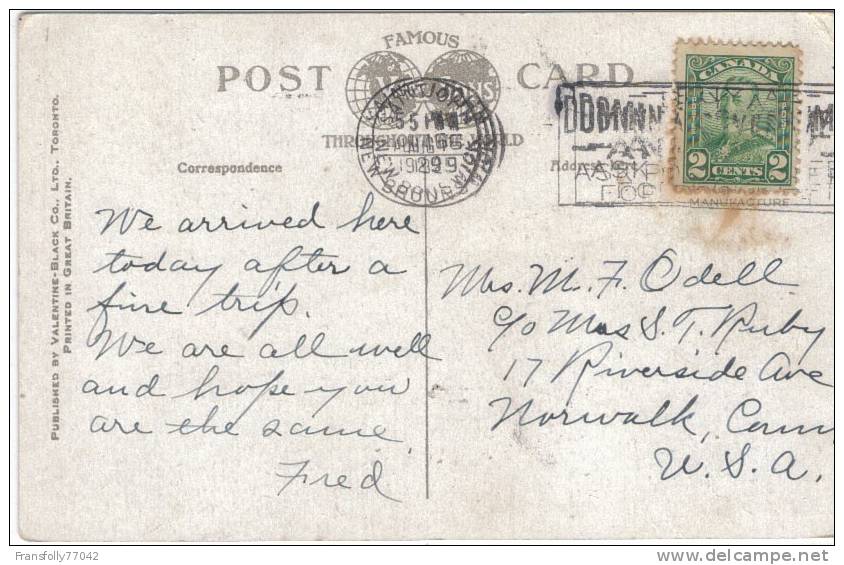 FAMOUS
POST CARD
THROUGHOUT THE WORLD
Correspondence
SAINT JOHN
5 PM
1929
NEW BRUNSWICK
CANADA
2 CENTS 2
MANUFACTURE
PUBLISHED BY VALENTINE-BLACK CO., LTD., TORONTO.
PRINTED IN GREAT BRITAIN.
We arrived here
today after a
fine trip.
We are all well
and hope you
are the same.
Fred
Mrs. M. F. Odell
c/o Mrs S. T. Ruby
17 Riverside Ave
Norwalk, Conn
U.S.A.
Fransfolly77042
delcampe.net